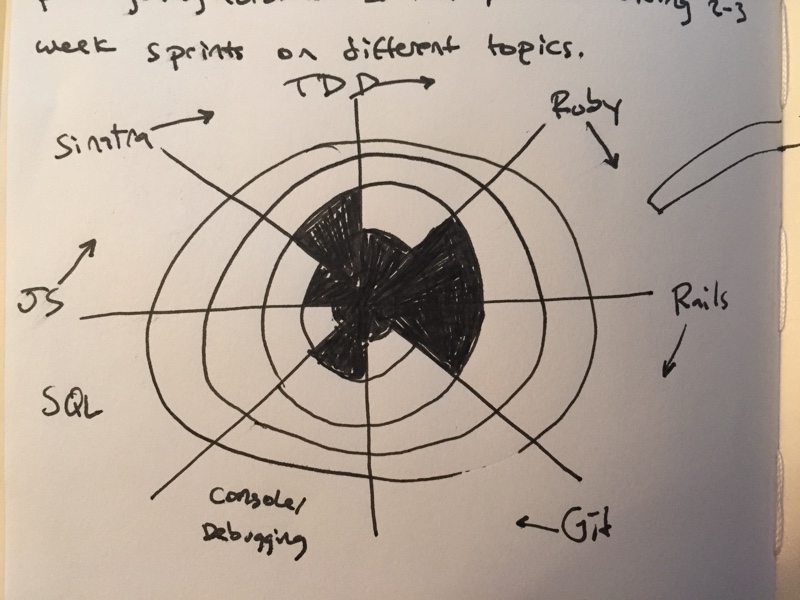 2-3
week sprints on different topics.
TDD
Ruby
Sinatra
JS
Rails
SQL
Console/
Debugging
Git